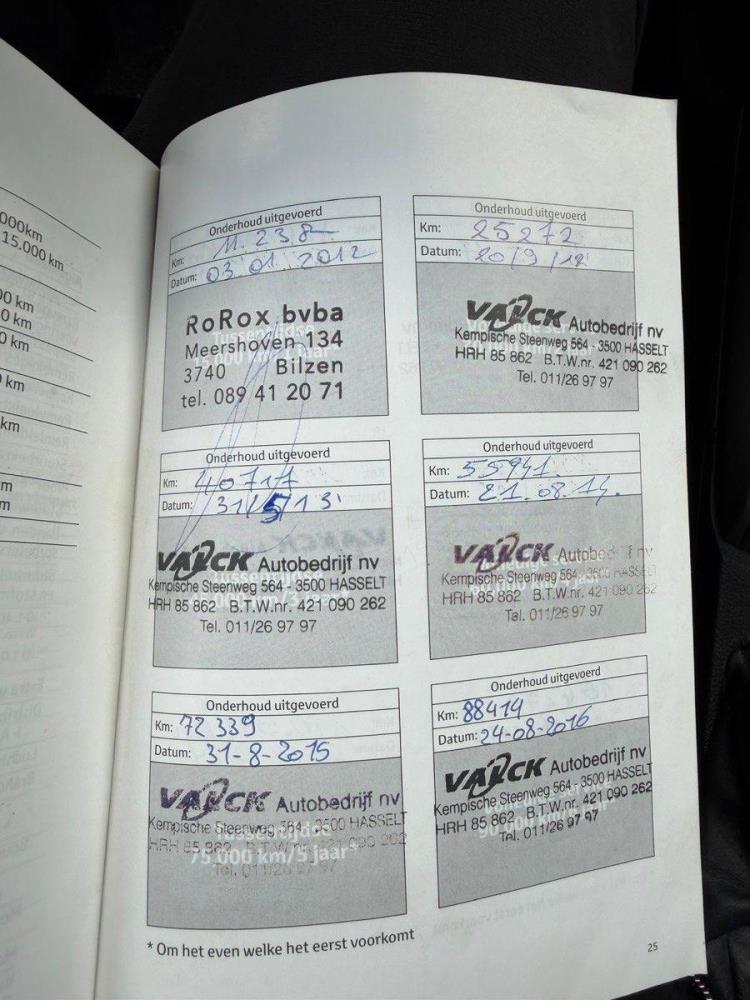 000km
15.000 km
00 km
0 km
0 km
km
km
m
m
Onderhoud uitgevoerd
Km: 11.238
Datum: 03.01.2012
RoRox bvba
Meershoven 134
3740 Bilzen
tel. 089 41 20 71
Tussentijdse
15.000 km/1 jaar*
Onderhoud uitgevoerd
Km: 25272
Datum: 20/9/12
VALCK Autobedrijf nv
Kempische Steenweg 564 - 3500 HASSELT
HRH 85 862 B.T.W.nr. 421 090 262
Tel. 011/26 97 97
Onderhoud uitgevoerd
Km: 40717
Datum: 31/5/13
VALCK Autobedrijf nv
Kempische Steenweg 564 - 3500 HASSELT
HRH 85 862 B.T.W.nr. 421 090 262
Tel. 011/26 97 97
Onderhoud uitgevoerd
Km: 55941
Datum: 21.08.14.
VALCK Autobedrijf nv
Kempische Steenweg 564 - 3500 HASSELT
HRH 85 862 B.T.W.nr. 421 090 262
Tel. 011/26 97 97
Onderhoud uitgevoerd
Km: 72 339
Datum: 31-8-2015
VALCK Autobedrijf nv
Kempische Steenweg 564 - 3500 HASSELT
HRH 85 862 B.T.W.nr. 421 090 262
Tel. 011/26 97 97
Tussentijdse
75.000 km/5 jaar*
Onderhoud uitgevoerd
Km: 88414
Datum: 24-08-2016
VALCK Autobedrijf nv
Kempische Steenweg 564 - 3500 HASSELT
HRH 85 862 B.T.W.nr. 421 090 262
Tel. 011/26 97 97
* Om het even welke het eerst voorkomt
25